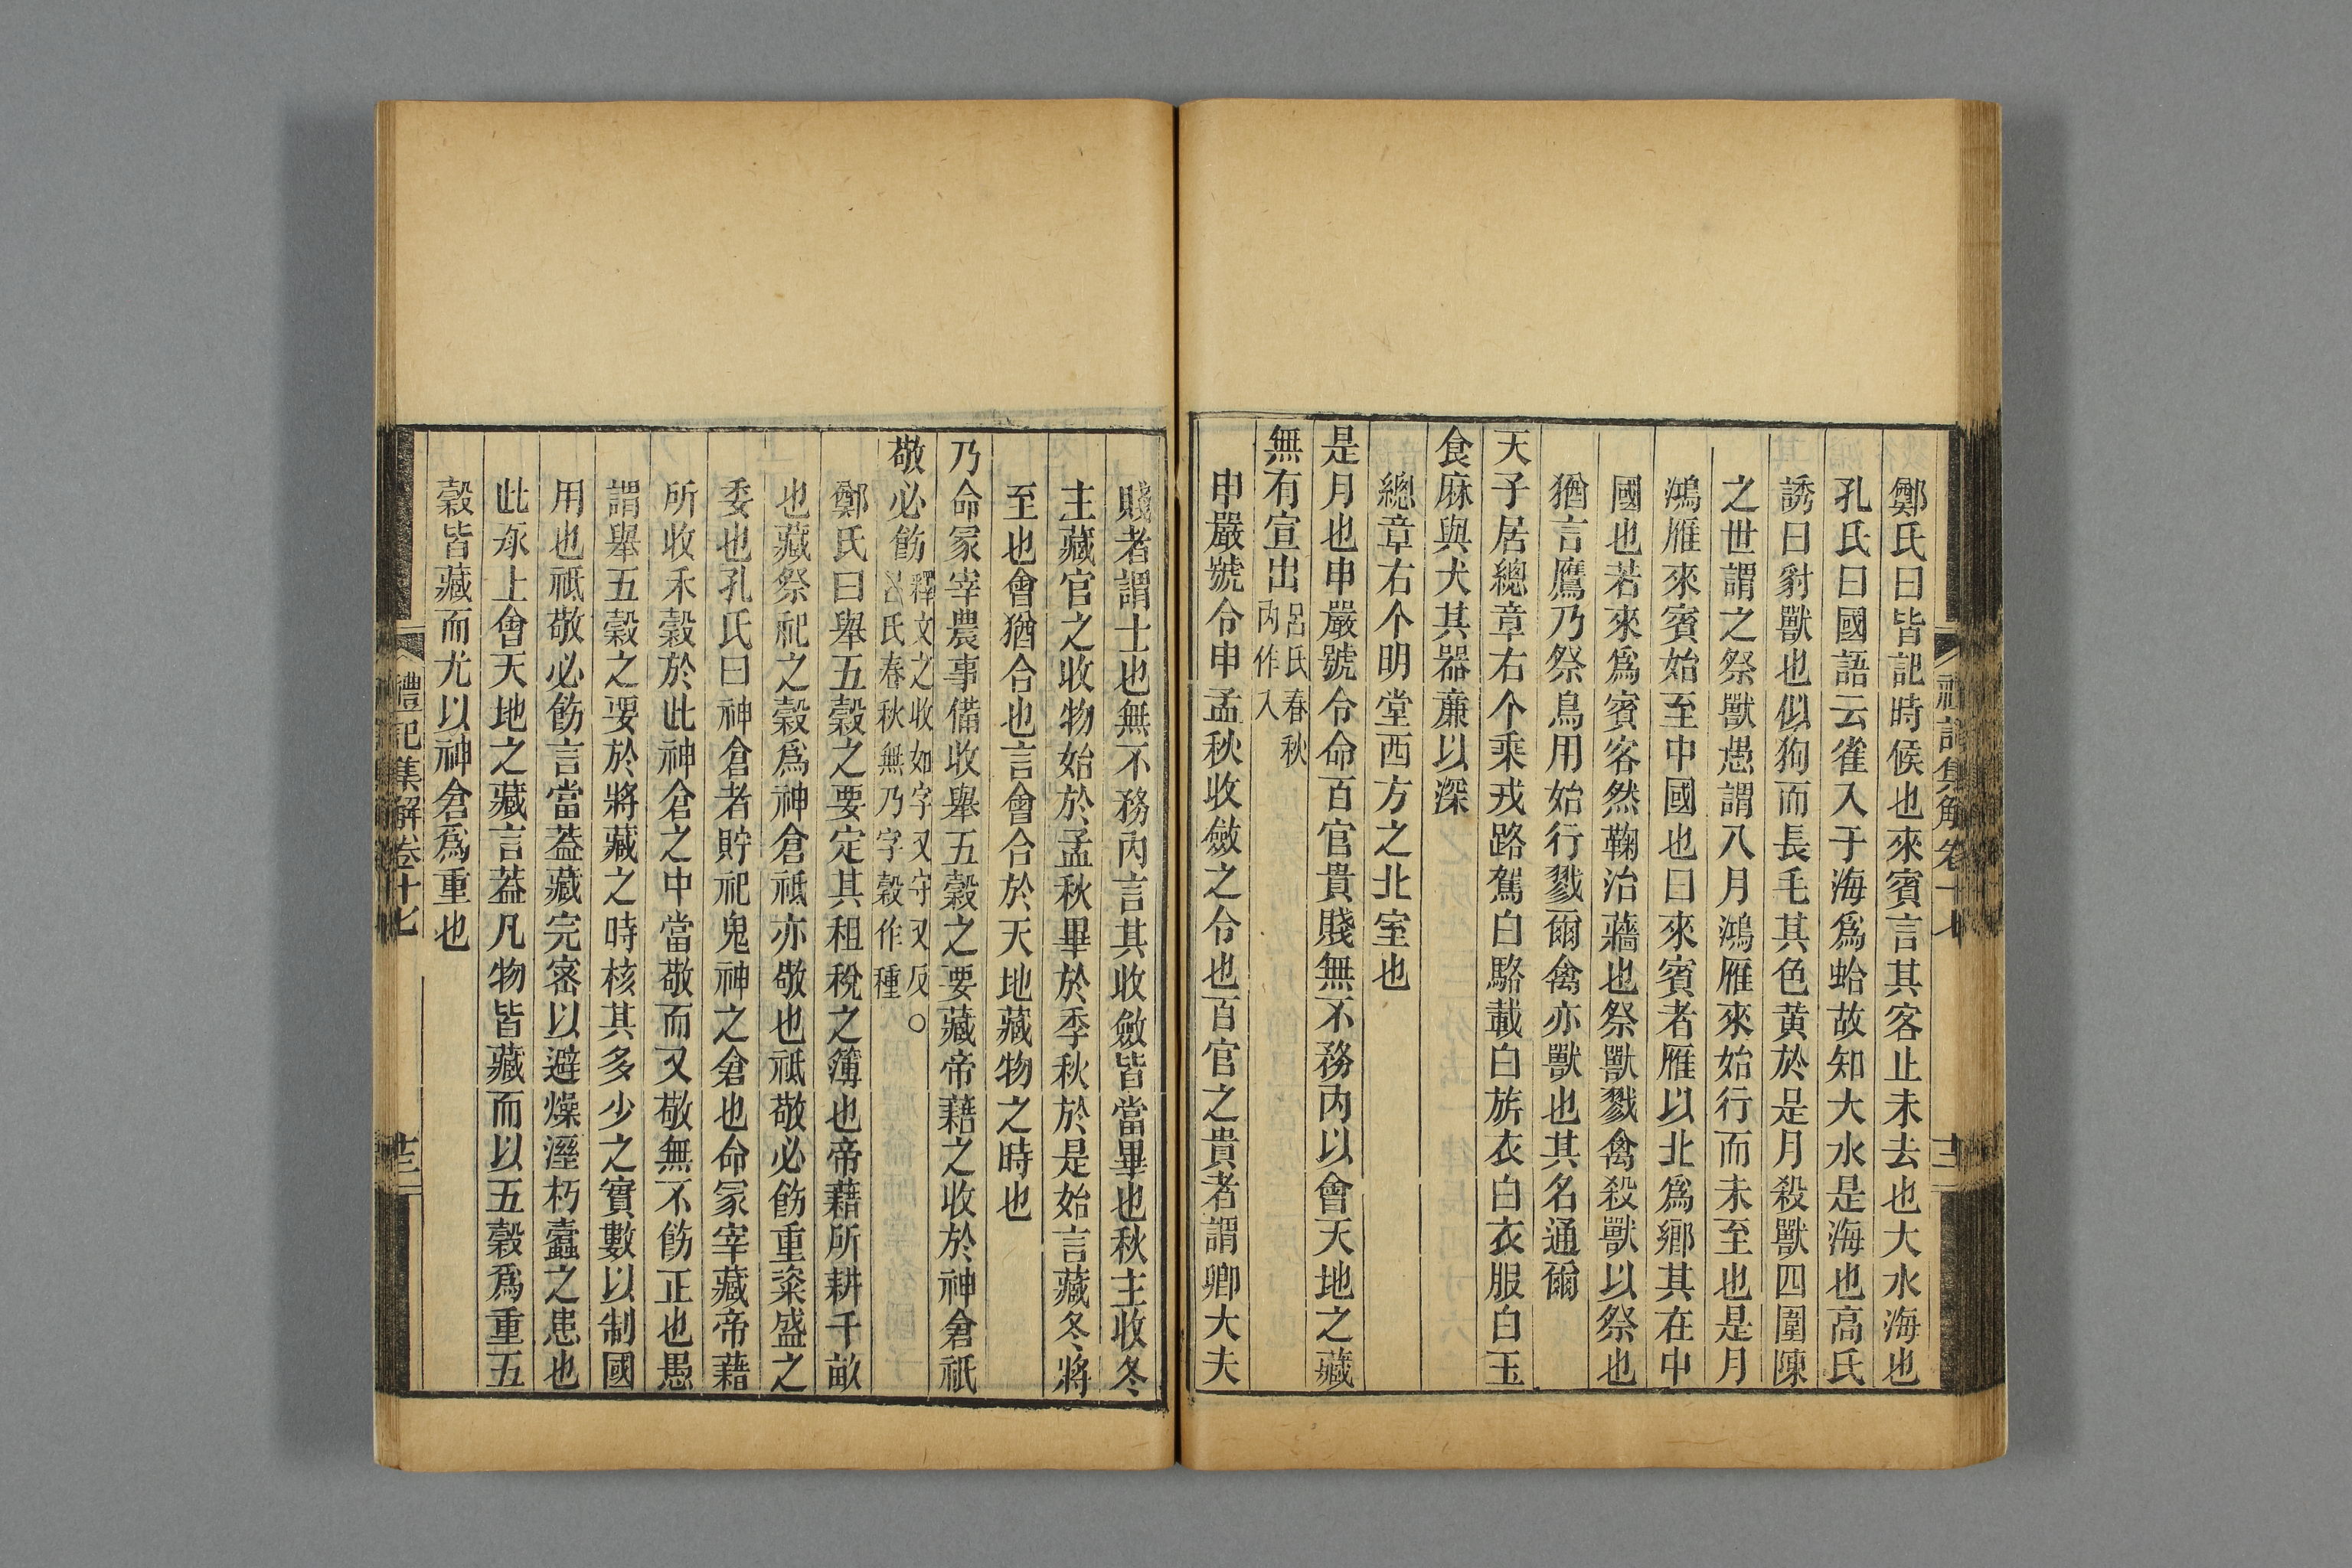 鄭氏曰皆記時候也來賓言其客止未去也大水海也
孔氏曰國語云雀入于海爲蛤故知大水是海也高氏
誘曰豺獸也似狗而長毛其色黄於是月殺獸四圍陳
之世謂之祭獸愚謂八月鴻雁來始行而未至也是月
鴻雁來賓始至中國也曰來賓者雁以北爲鄉其在中
國也若來爲賓客然鞠治蘠也祭獸戮禽殺獸以祭也
猶言鷹乃祭鳥用始行戮爾禽亦獸也其名通爾
天子居總章右个乘戎路駕白駱載白旂衣白衣服白玉
食麻與犬其器廉以深
總章右个明堂西方之北室也
是月也申嚴號令命百官貴賤無不務內以會天地之藏
無有宣出呂氏春秋內作入
申嚴號令申孟秋收斂之令也百官之貴者謂卿大夫
賤者謂士也無不務內言其收斂皆當畢也秋主收冬
主藏官之收物始於孟秋畢於季秋於是始言藏冬將
至也會猶合也言會合於天地藏物之時也
乃命冢宰農事備收舉五穀之要藏帝藉之收於神倉祗
敬必飭釋文之收如字又守又反○呂氏春秋無乃字穀作種
鄭氏曰舉五穀之要定其租稅之簿也帝藉所耕千畝
也藏祭祀之穀爲神倉祗亦敬也祗敬必飭重粢盛之
委也孔氏曰神倉者貯祀鬼神之倉也命冢宰藏帝藉
所收禾穀於此神倉之中當敬而又敬無不飭正也愚
謂舉五穀之要於將藏之時核其多少之實數以制國
用也祗敬必飭言當葢藏完密以避燥溼朽蠧之患也
此承上會天地之藏言葢凡物皆藏而以五穀爲重五
穀皆藏而尤以神倉爲重也
禮記集解卷十七